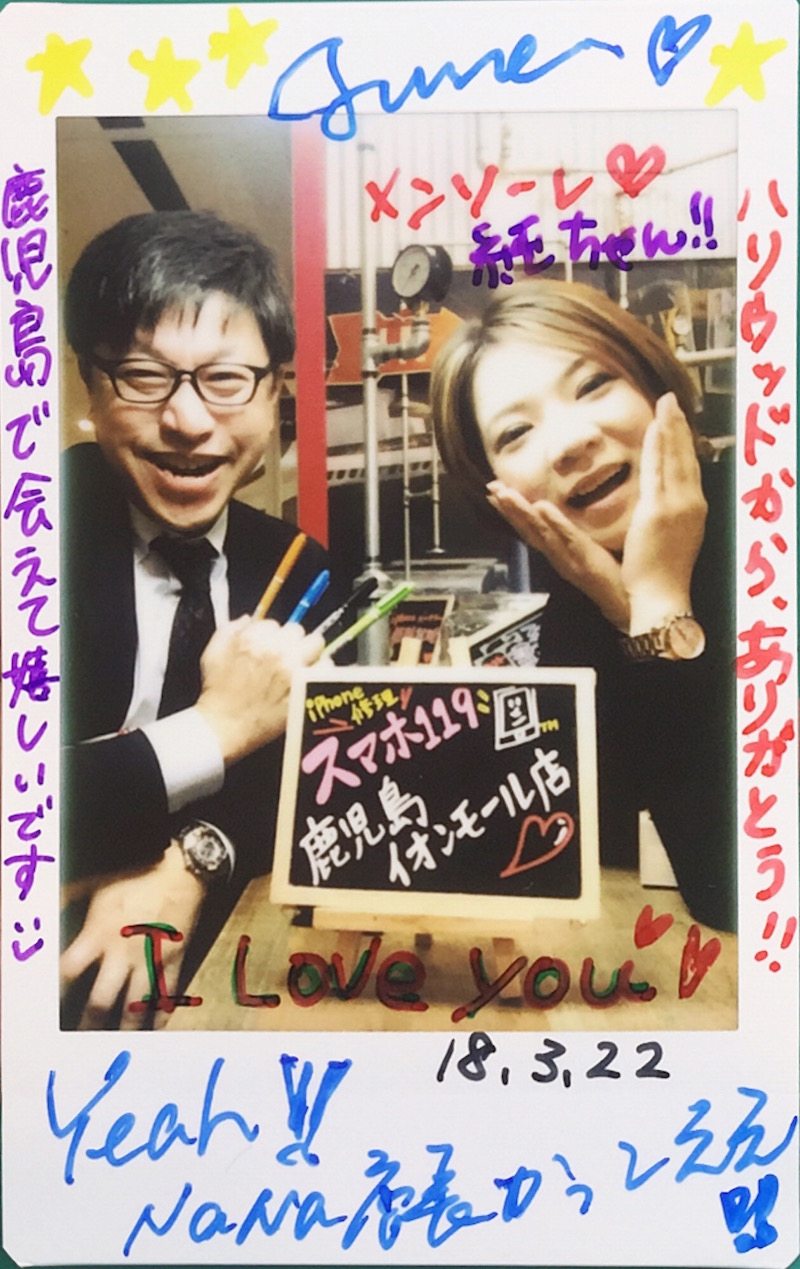 June
メンソーレ
純ちゃん!!
鹿児島で会えて嬉しいです
ハリウッドから、ありがとう!!
iPhone
修理
スマホ119
TM
鹿児島
イオンモール店
I Love you
18.3.22
Yeah!!
NaNa店長かっこええ!!